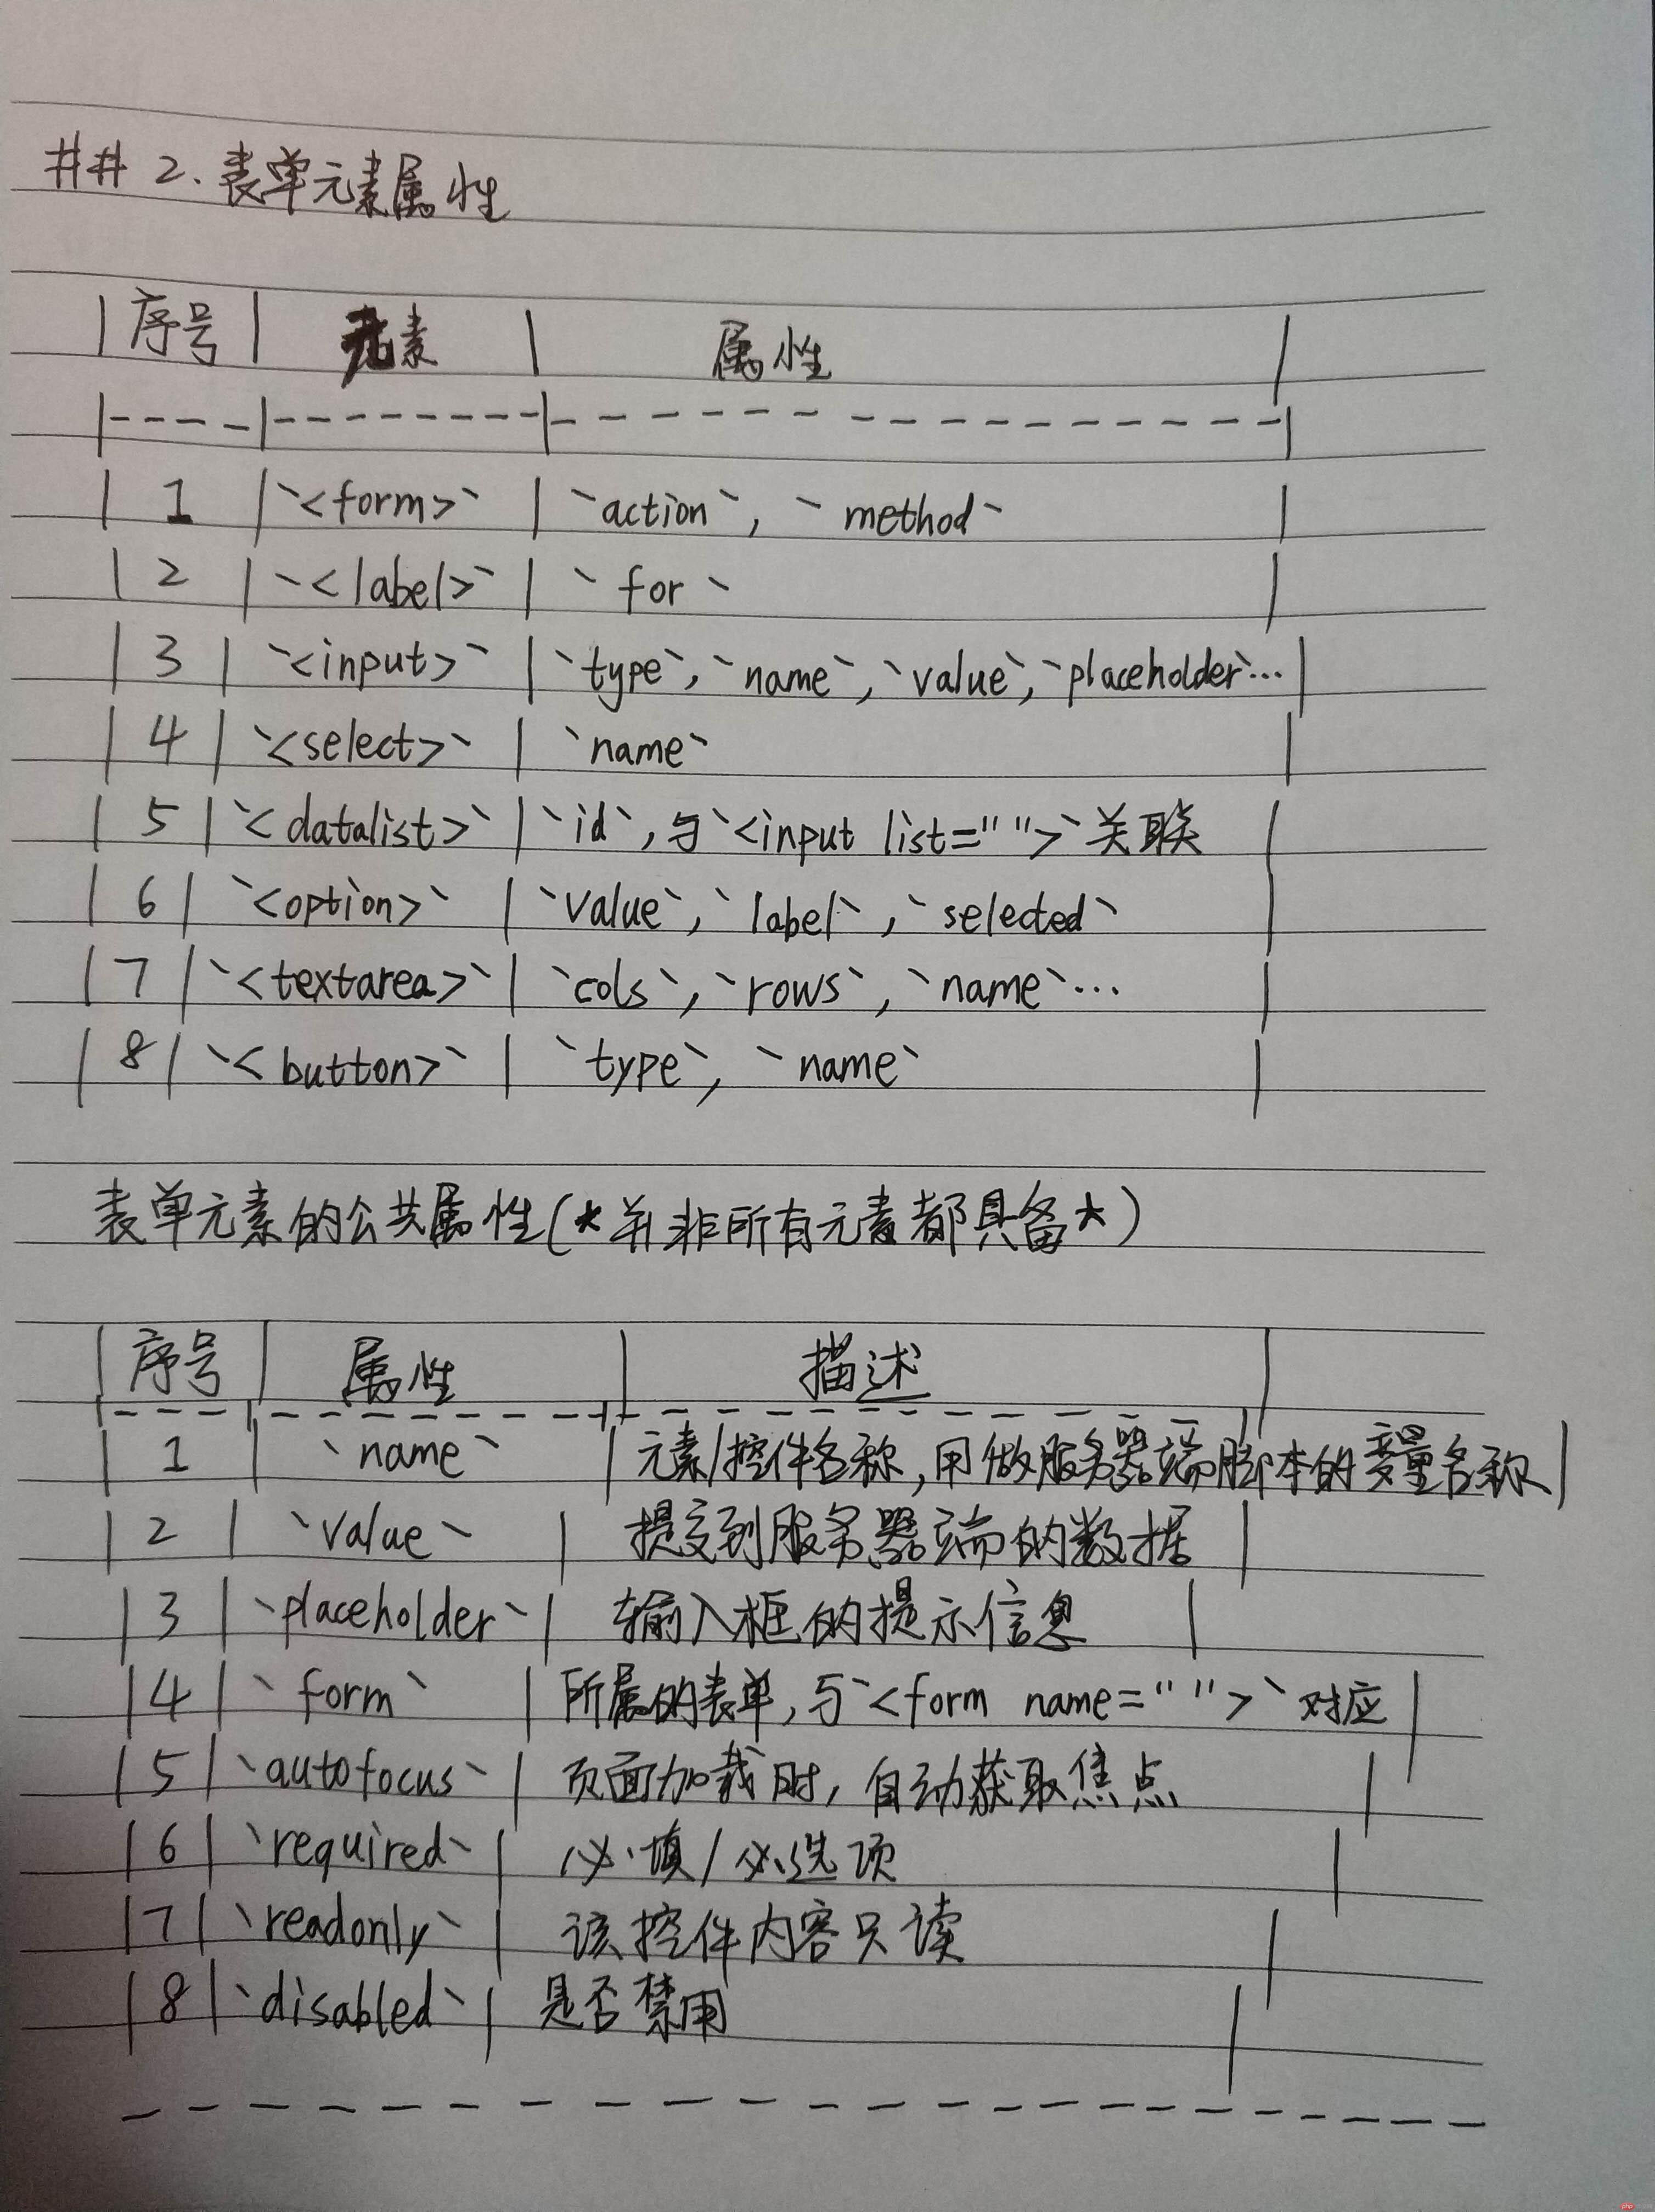 ## 2. 表单元素属性
| 序号 | 元素 | 属性 |
|----|--------|--------------|
| 1 | `<form>` | `action`, `method` |
| 2 | `<label>` | `for` |
| 3 | `<input>` | `type`, `name`, `value`, `placeholder`... |
| 4 | `<select>` | `name` |
| 5 | `<datalist>` | `id`, 与`<input list="">`关联 |
| 6 | `<option>` | `value`, `label`, `selected` |
| 7 | `<textarea>` | `cols`, `rows`, `name`... |
| 8 | `<button>` | `type`, `name` |
表单元素的公共属性(*并非所有元素都具备*)
| 序号 | 属性 | 描述 |
|---|--------|-----------|
| 1 | `name` | 元素/控件名称, 用做服务器端脚本的变量名称 |
| 2 | `value` | 提交到服务器端的数据 |
| 3 | `placeholder` | 输入框的提示信息 |
| 4 | `form` | 所属的表单, 与`<form name="">`对应 |
| 5 | `autofocus` | 页面加载时, 自动获取焦点 |
| 6 | `required` | 必填/必选项 |
| 7 | `readonly` | 该控件内容只读 |
| 8 | `disabled` | 是否禁用 |
--------------------